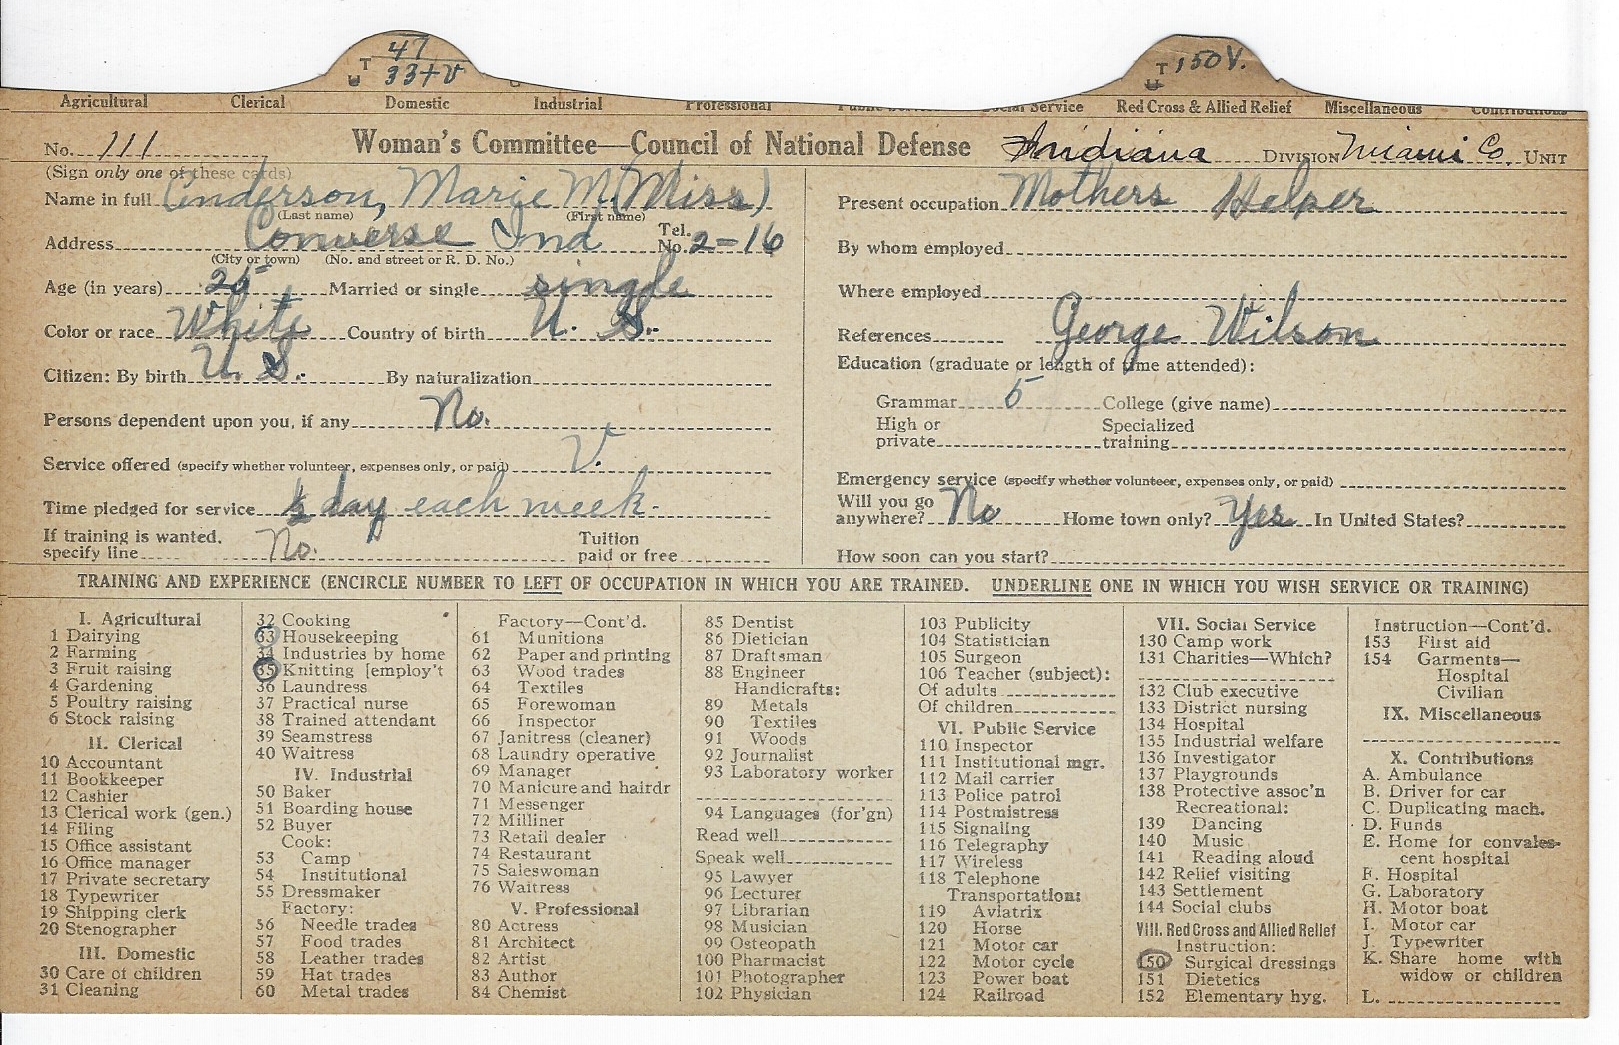 47
T
33+V
T 150V.
Agricultural Clerical Domestic Industrial Professional Public Service Social Service Red Cross & Allied Relief Miscellaneous Contributions
No. 111 Woman's Committee—Council of National Defense Indiana DIVISION Miami Co. UNIT
(Sign only one of these cards)
Name in full Anderson, Marie M. (Miss)
(Last name) (First name)
Address Converse Ind Tel. No. 2-16
(City or town) (No. and street or R. D. No.)
Age (in years) 25 Married or single single
Color or race White Country of birth U. S.
Citizen: By birth U. S. By naturalization
Persons dependent upon you, if any No.
Service offered (specify whether volunteer, expenses only, or paid) V.
Time pledged for service ½ day each week.
If training is wanted, specify line No. Tuition paid or free
Present occupation Mothers Helper
By whom employed
Where employed
References George Wilson
Education (graduate or length of time attended):
Grammar 5 College (give name)
High or private Specialized training
Emergency service (specify whether volunteer, expenses only, or paid)
Will you go anywhere? No Home town only? Yes In United States?
How soon can you start?
TRAINING AND EXPERIENCE (ENCIRCLE NUMBER TO LEFT OF OCCUPATION IN WHICH YOU ARE TRAINED. UNDERLINE ONE IN WHICH YOU WISH SERVICE OR TRAINING)
I. Agricultural
1 Dairying
2 Farming
3 Fruit raising
4 Gardening
5 Poultry raising
6 Stock raising
II. Clerical
10 Accountant
11 Bookkeeper
12 Cashier
13 Clerical work (gen.)
14 Filing
15 Office assistant
16 Office manager
17 Private secretary
18 Typewriter
19 Shipping clerk
20 Stenographer
III. Domestic
30 Care of children
31 Cleaning
32 Cooking
33 Housekeeping
34 Industries by home
35 Knitting [employ't
36 Laundress
37 Practical nurse
38 Trained attendant
39 Seamstress
40 Waitress
IV. Industrial
50 Baker
51 Boarding house
52 Buyer
Cook:
53 Camp
54 Institutional
55 Dressmaker
Factory:
56 Needle trades
57 Food trades
58 Leather trades
59 Hat trades
60 Metal trades
Factory—Cont'd.
61 Munitions
62 Paper and printing
63 Wood trades
64 Textiles
65 Forewoman
66 Inspector
67 Janitress (cleaner)
68 Laundry operative
69 Manager
70 Manicure and hairdr
71 Messenger
72 Milliner
73 Retail dealer
74 Restaurant
75 Saleswoman
76 Waitress
V. Professional
80 Actress
81 Architect
82 Artist
83 Author
84 Chemist
85 Dentist
86 Dietician
87 Draftsman
88 Engineer
Handicrafts:
89 Metals
90 Textiles
91 Woods
92 Journalist
93 Laboratory worker
94 Languages (for'gn)
Read well
Speak well
95 Lawyer
96 Lecturer
97 Librarian
98 Musician
99 Osteopath
100 Pharmacist
101 Photographer
102 Physician
103 Publicity
104 Statistician
105 Surgeon
106 Teacher (subject):
Of adults
Of children
VI. Public Service
110 Inspector
111 Institutional mgr.
112 Mail carrier
113 Police patrol
114 Postmistress
115 Signaling
116 Telegraphy
117 Wireless
118 Telephone
Transportation:
119 Aviatrix
120 Horse
121 Motor car
122 Motor cycle
123 Power boat
124 Railroad
VII. Social Service
130 Camp work
131 Charities—Which?
132 Club executive
133 District nursing
134 Hospital
135 Industrial welfare
136 Investigator
137 Playgrounds
138 Protective assoc'n
Recreational:
139 Dancing
140 Music
141 Reading aloud
142 Relief visiting
143 Settlement
144 Social clubs
VIII. Red Cross and Allied Relief
Instruction:
150 Surgical dressings
151 Dietetics
152 Elementary hyg.
Instruction—Cont'd.
153 First aid
154 Garments—
Hospital
Civilian
IX. Miscellaneous
X. Contributions
A. Ambulance
B. Driver for car
C. Duplicating mach.
D. Funds
E. Home for convales-
cent hospital
F. Hospital
G. Laboratory
H. Motor boat
I. Motor car
J. Typewriter
K. Share home with
widow or children
L.